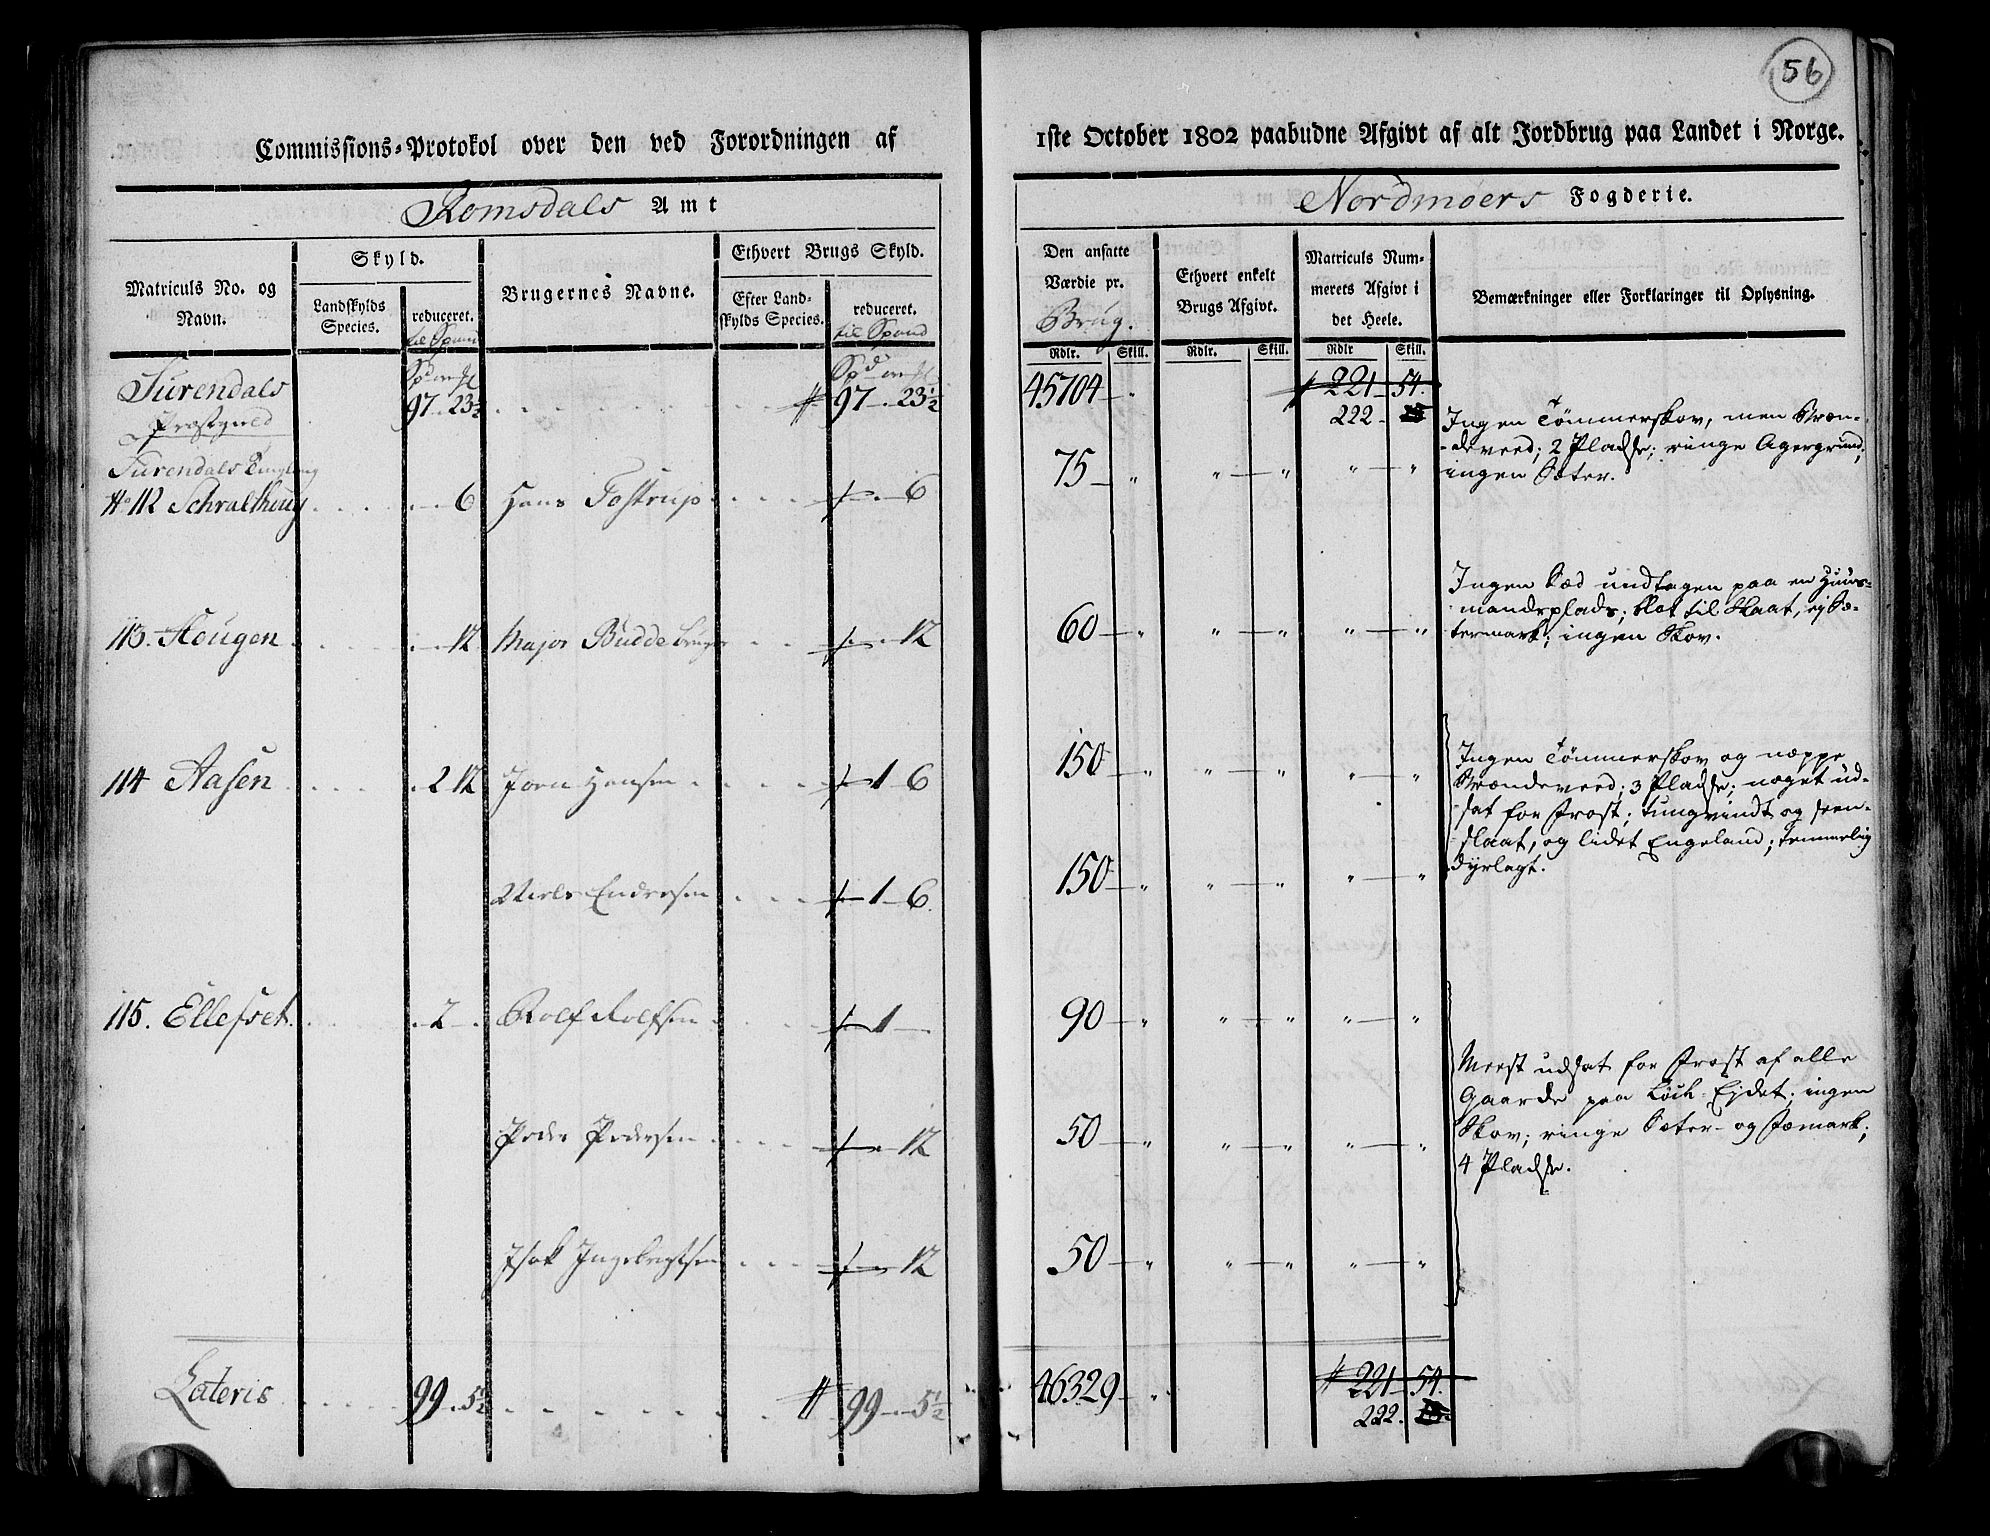 56
Commissions-Protokol over den ved Forordningen af
1ste October 1802 paabudne Afgivt af alt Jordbrug paa Landet i Norge.
Romsdals Amt
Nordmøers Fogderie.
Matriculs No. og Navn.
Skyld.
Landskylds Species.
reduceret.
til Spand
Brugernes Navne.
Ethvert Brugs Skyld.
Efter Landskylds Species.
reduceret.
til Spand
Den ansatte Værdie pr.
Brug.
Ethvert enkelt Brugs Afgivt.
Matriculs Nummerets Afgivt i det Heele.
Bemærkninger eller Forklaringer til Oplysning.
Rdlr. Skill. Rdlr. Skill. Rdlr Skill.
Surendals 97 . 23½ 97 . 23½ 45704 - 221 - 54.
Præstegield 222
Surendals
No 112 Schralthoug 6 Hans Tostrup 6 75 - „ „ - „ „ - „
Ingen Tømmerskov, men Bræn-
deveed; 2 Pladse; ringe Agergrund;
ingen Sæter.
113. Hougen 12 Major Budde bruger 12 60 - „ „ - „ „ - „
Ingen Sæd undtagen paa en Huus-
mandsplads; blot til Slaat, ej Sæ-
termark; ingen Skov.
114 Aasen 2 12 Joen Hansen 1 - 6 150 - „ „ - „ „ - „
Niels Endersen 1 - 6. 150 - „ „ - „ „ - „
Ingen Tømmerskov og næppe
Brændeveed; 3 Pladse; noget ud-
sat for Frost; tungvindt og seen-
slaat, og lidet Engeland; temmelig
dyrlagt.
115. Ellefset. 2 Rolf Rolfsen 1 90 - „ „ - „ „ - „
Peder Pedersen 12 50 - „ „ - „ „ - „
Isak Ingebrigtsen 12 50 - „ „ - „ „ - „
Meest udsat for Frost af alle
Gaarde paa Ejdet; ingen
Skov; ringe Sæter- og Fæmark;
4 Pladse.
Lateris 99 . 5½ 99 . 5½ 46329 - „ 221 - 54.
222.